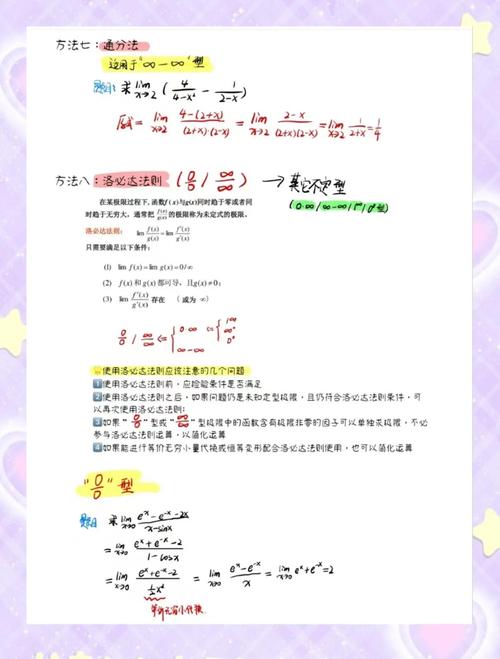 方法七：通分法
适用于“∞－∞”型
题目：求 lim x→2 (4/(4-x²) - 1/(2-x))
原式 = lim x→2 (4-(2+x))/((2+x)·(2-x)) = lim x→2 (2-x)/((2+x)(2-x)) = lim x→2 1/(2+x) = 1/4
方法八：洛必达法则 (0/0 / ∞/∞) → 其它不定型
(0·∞/∞-∞/1^∞/0⁰型)
在某极限过程下,函数f(x)与g(x)同时趋于零或者同
时趋于无穷大，通常把 f(x)/g(x) 的极限称为未定式的极限。
洛必达法则： lim f(x)/g(x) = lim f'(x)/g'(x)
只需要满足以下条件：
(1) lim f(x)=lim g(x)=0/∞
(2) f(x) 和 g(x) 都可导，且g(x)≠0；
(3) lim f'(x)/g'(x) 存在 （或为 ∞）
0/0 / ∞/∞ ⇐ { 0·∞ ∞-∞ ⇐ { 1^∞ ∞⁰ 0⁰
使用洛必达法则应该注意的几个问题
1 使用洛必达法则前，应检验条件是否满足
2 使用洛必达法则之后，如果问题仍是未知定型极限，且仍符合洛必达法则条件，可
以再次使用洛必达法则；
3 如果“0/0”型或“∞/∞”型极限中的函数含有极限非零的因子可以单独求极限，不必
参与洛必达法则运算，以简化运算
4 如果能进行等价无穷小量代换或恒等变形配合洛必达法则使用，也可以简化运算
“0/0”型
题目 求 lim x→0 (eˣ-e⁻ˣ-2x)/(x-sinx)
= lim x→0 (eˣ+e⁻ˣ-2)/(1-cosx)
= lim x→0 (eˣ+e⁻ˣ-2)/(½x²) = lim x→0 (eˣ-e⁻ˣ)/x = lim x→0 eˣ+e⁻ˣ=2
等价无穷小代换